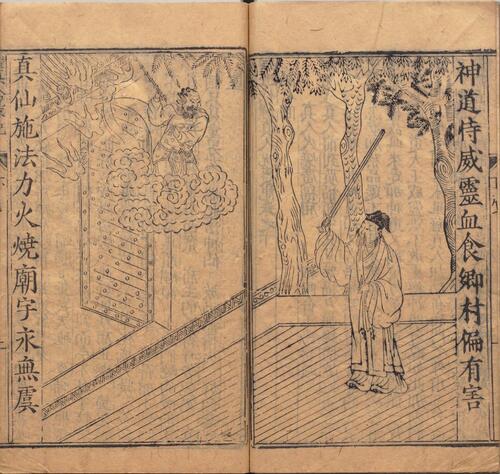 神道恃威靈血食鄉村偏有害
真仙施法力火燒廟宇永無虞